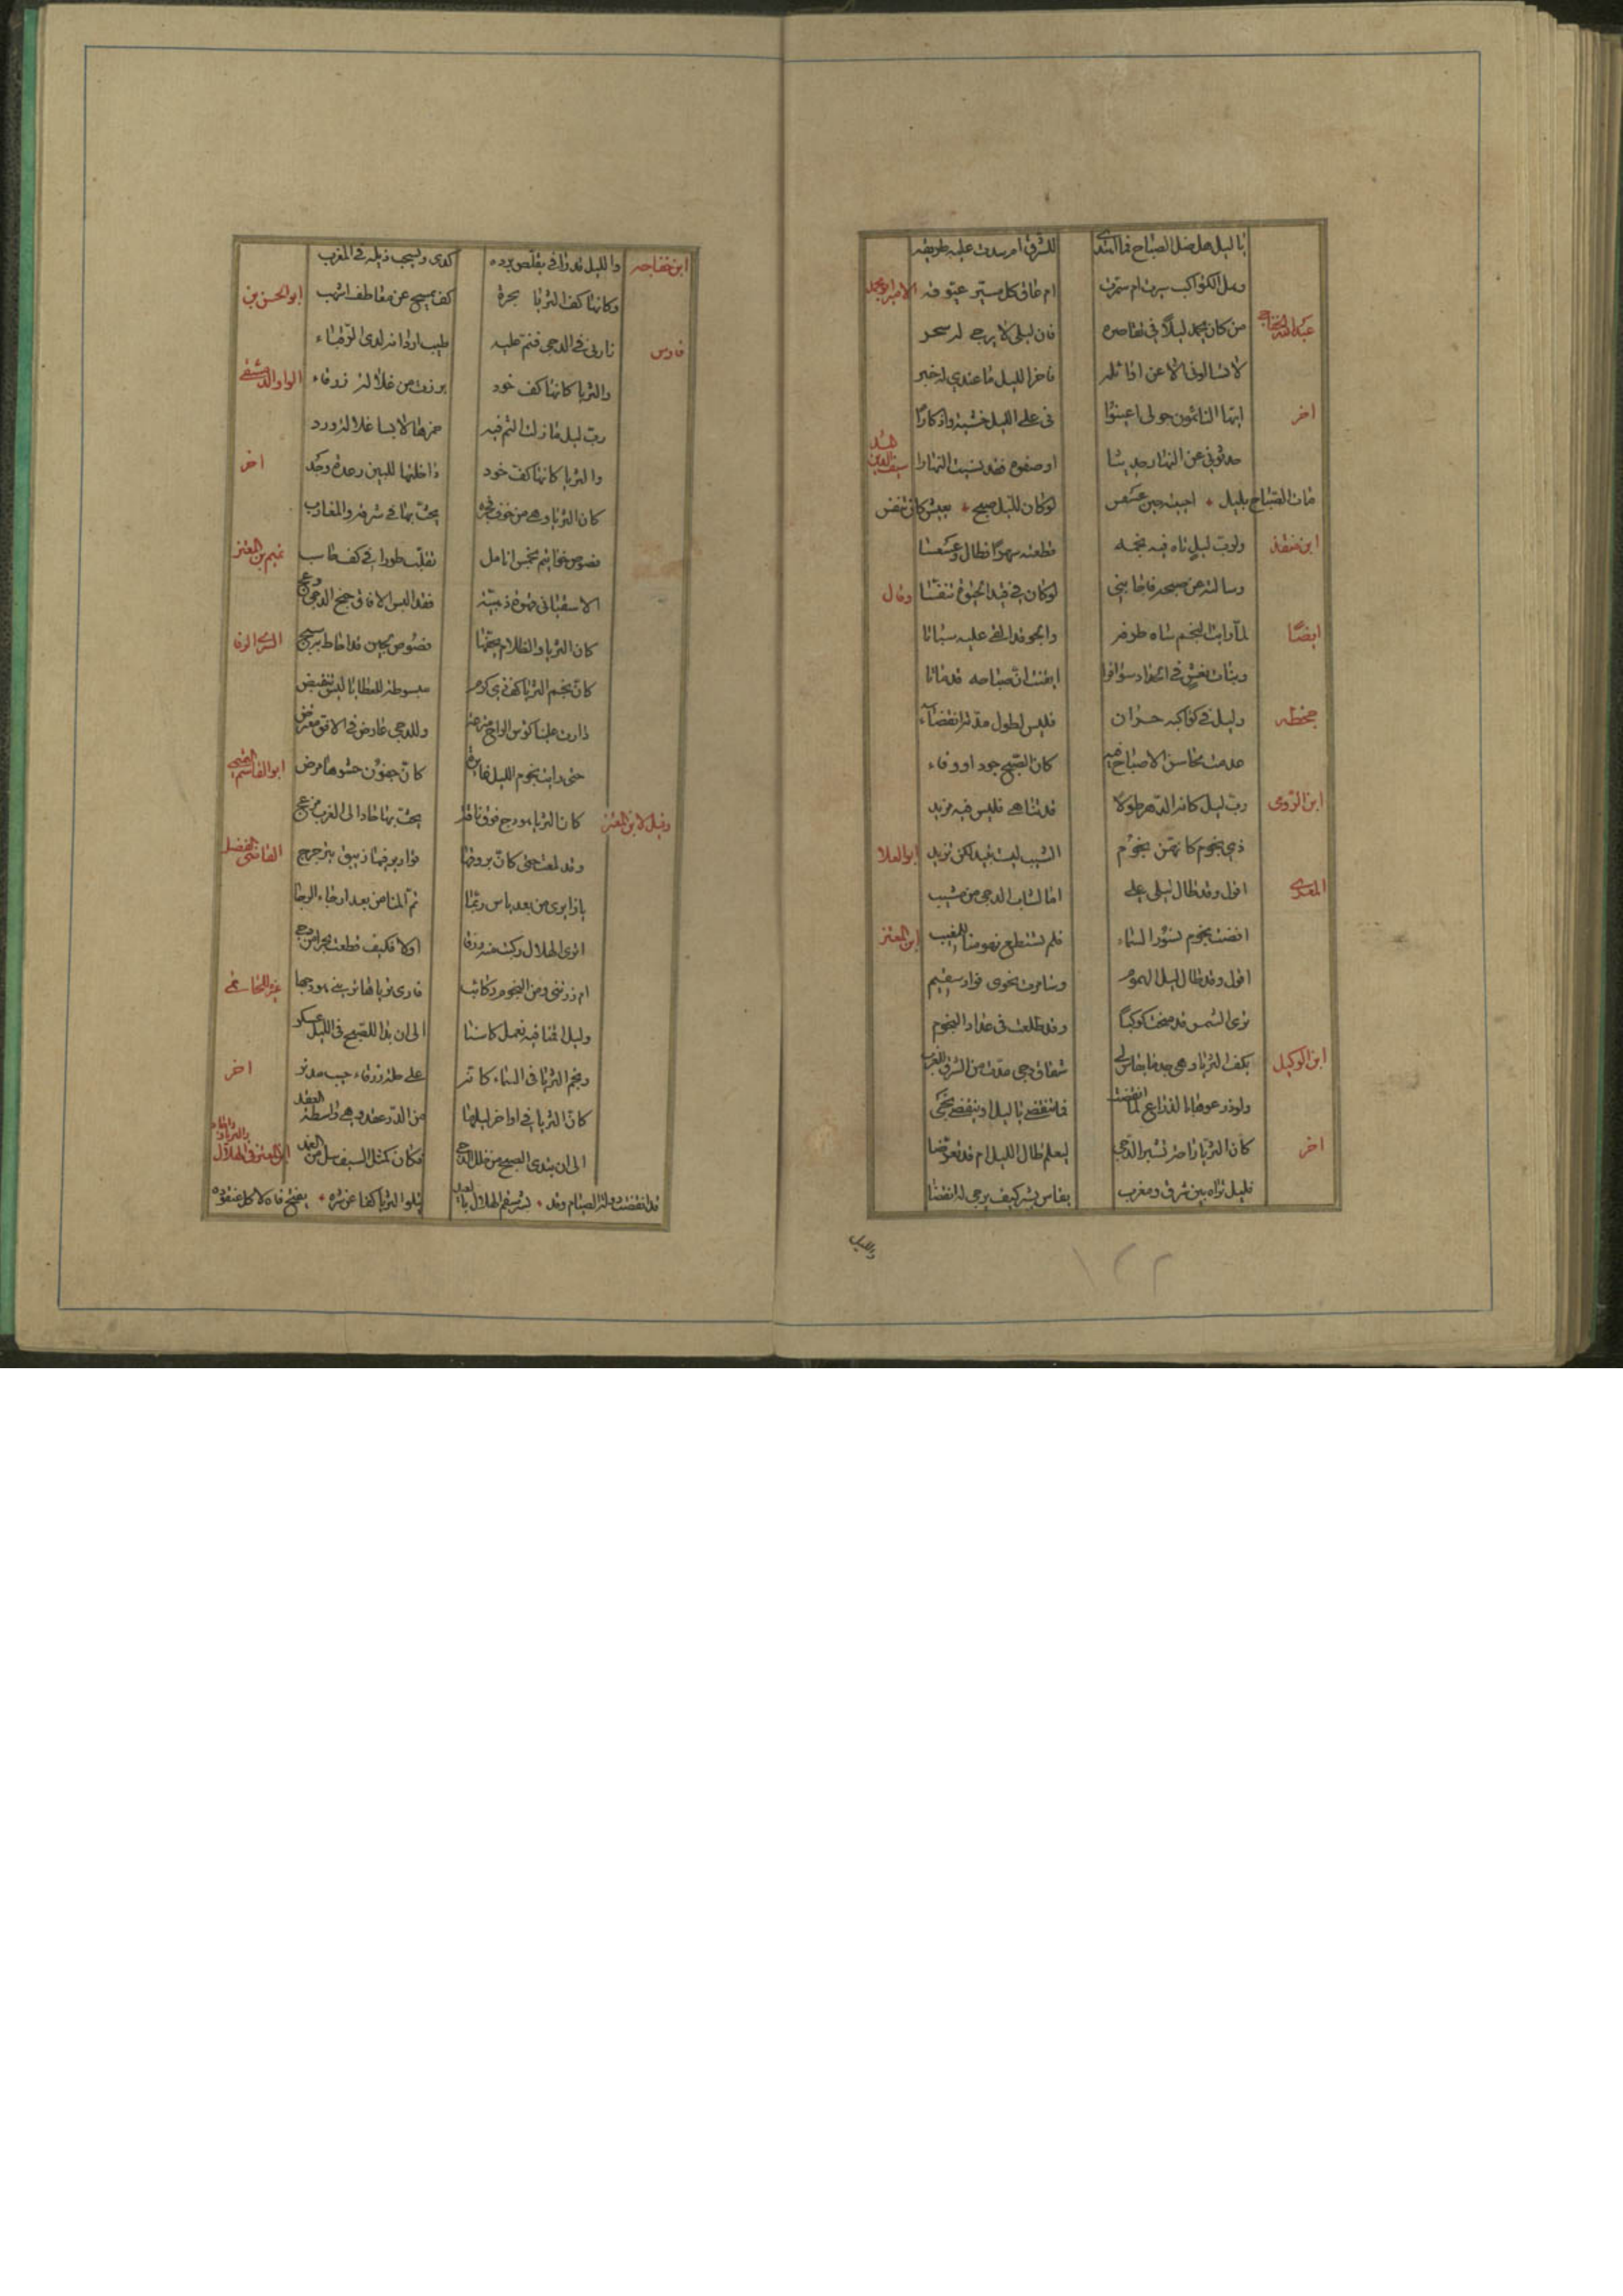 يا ليل هل ضل الصباح فما اهتدى للشرق ام سدت عليه طريقه
وهل الكواكب سيرت ام سمرت ام عاق كل مسير عيوقه الامير ابو محمد
عبد الله الخفاجي من كان يحمد ليلا في تقاصره فان ليلى لا يرجى له سحر
لا تسالونى الا عن اوائله فاخر الليل ما عندي له خبر
اخر ايها النائمون حولى اعينوا نى على الليل حسبة وادكارا
حدثونى عن النهار حديثا اوصفوه فقد نسيت النهارا سيف الدين المشد
مات الصباح بليل احييته حين عسعس لو كان لليل صبح يعيش كان تنفس
ابن منقذ ولرب ليل تاه فيه نجمه قطعته سهرا فطال وعسعسا
وسالته عن صبحه فاجابنى لو كان في قيد الحيوة تنفسا وقال
ايضا لما رايت النجم ساه طرفه والجو قد القى عليه سباتا
وبنات نعش في الحداد سوافرا ايقنت ان صباحه قد ماتا
جحظه وليل في كواكبه حران فليس لطول مدته انقضاء
عدمت محاسن الاصباح فيه كان الصبح جود او وفاء
ابن الرومى رب ليل كانه الدهر طولا قد تناهى فليس فيه مزيد
ذي نجوم كانهن نجوم الشيب ليست تغيب لكن تزيد ابو العلا
المعرى اقول وقد طال ليلى على اما لشباب الدجى من مشيب
اقصت نجوم نسور السماء فلم تستطع نهوضا للمغيب ابن المعتز
اقول وقد طال ليل الهموم وسامرت نجوى فواد سقيم
ترى الشمس قد مسخت كوكبا وقد طلعت في عداد النجوم
ابن الوكيل بكف الثريا وهى جدما يقاس لى شقاق دجى مدت من الشرق للغرب
ولو ذرعوها بالذراع لما انقضت فما تنقضى يا ليل او ينقضى نحبى
اخر كان الثريا راحة تشبر الدجى ليعلم طال الليل ام قد تعرضا
فليل تراه بين شرق ومغرب يقاس بشبر كيف يرجى له انقضا
والليل
١٢٢
ابن خفاجه والليل قد ولى يقلص برده كدى ويسحب ذيله في المغرب
وكانما كف الثريا بحرة كف تمسح عن مقاطف اشهب ابو الحسن بن
فارس زارنى في الدجى فنم عليه طيب اردانه لدى الرقباء
والثريا كانها كف خود برزت من غلالة زرقاء الواوا الدمشقى
رب ليل ما زلت الثم فيه خمرها لابسا غلالة ورد
والثريا كانها كف خود داخلتها للبين رعدة وجد اخر
كان الثريا وهى من خوف فجره يحث بها في شرقه والمغارب
فصوص خواتيم بخمس انامل تقلب طورا في كف حاسب تميم بن المعتز
الا سقيانى قهوة ذهبية فقد البس الافاق جنح الدجى دعج
كان الثريا والظلام يحفها فصوص لجين قد احاط به سبج السرى الرفا
كان نجم الثريا كف ذي كرم مبسوطة للعطايا ليس تنقبض
دارت علينا كؤس الراح مترعة وللدجى عارض في الافق معترض
حتى رايت نجوم الليل غايرة كان جفون حشوها مرض ابو القاسم
وقيل لابن المعتز كان الثريا هودج فوق ناقة يحث بها حاد الى الغرب مزعج
وقد لمعت حتى كان بروقها قوارير فيها زيبق يترجرج القاضى الفضل
اترى الهلال ركبت منه زورقا اولا فكيف قطعت بحرا من دجى
ام زرتنى ومن النجوم ركائب فارى ثرياها ترينى هودجها
وليل اقمنا فيه نعمل كاسنا الى ان بدا للصبح في الليل عسكر
ونجم الثريا في السماء كانه على حلة زرقاء جيب مدنر اخر
كان الثريا في اواخر ليلها من الدر عقد وهى واسطة العقد
الى ان بتدى الصبح من خلل الدجى فكان كمثل السيف سل من الغمد ابن المعتز في الهلال والثريا
قد انقضت دولة الصيام وقد بشر سقم الهلال بالعيد يتلو الثريا كفاغر شره يفتح فاه لاكل عنقود